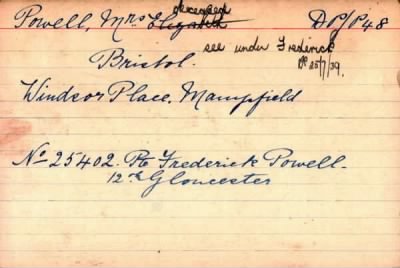 deceased
Powell, Mrs Elizabeth DP/P48
see under Frederick
25/7/39.
Bristol.
Windsor Place, Mangotsfield
No 25402. Pte Frederick Powell.
12th Gloucester